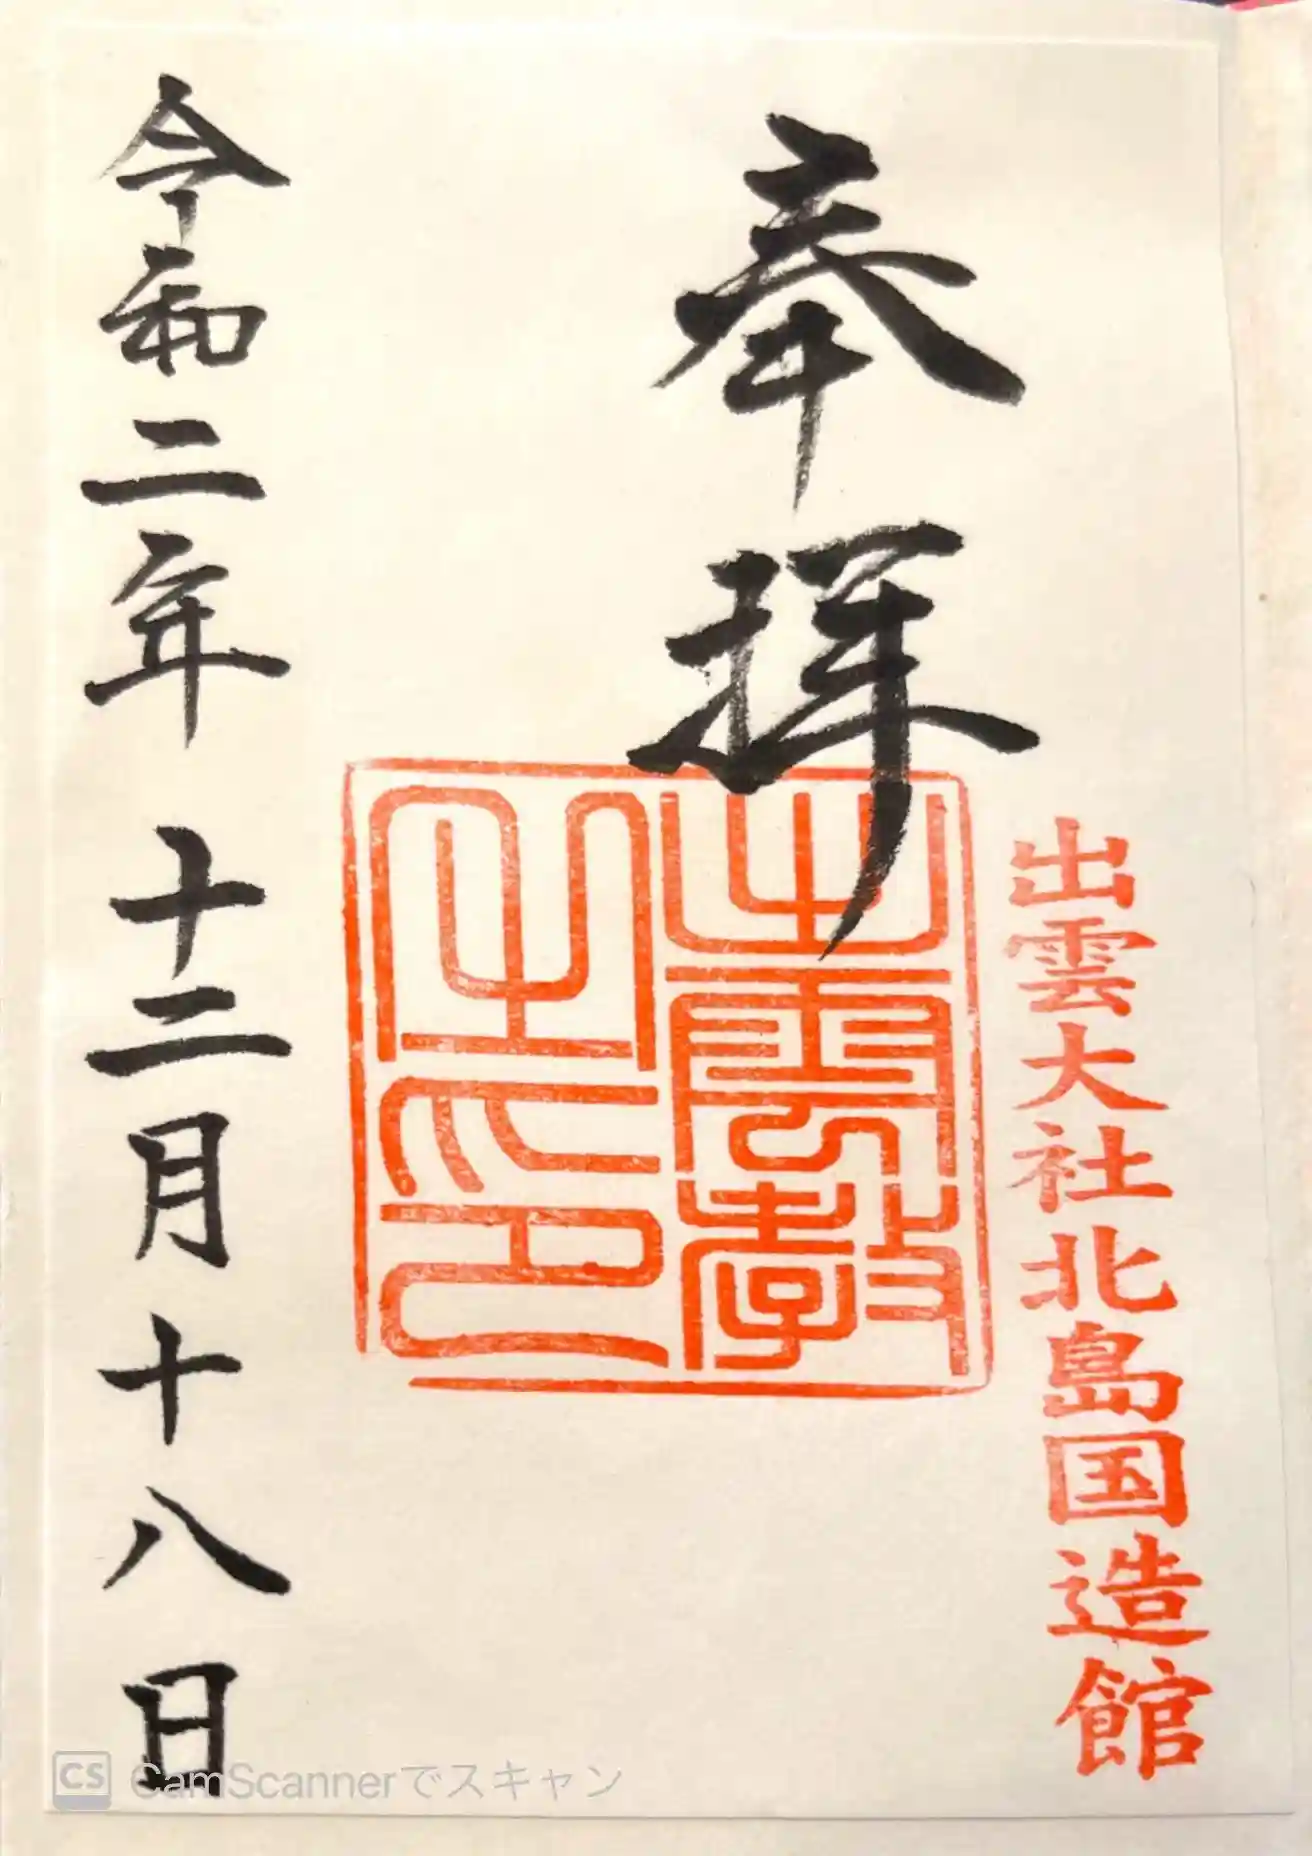 出雲大社北島国造館
奉拝
出雲教
之印
令和二年 十二月 十八日
CS CamScannerでスキャン